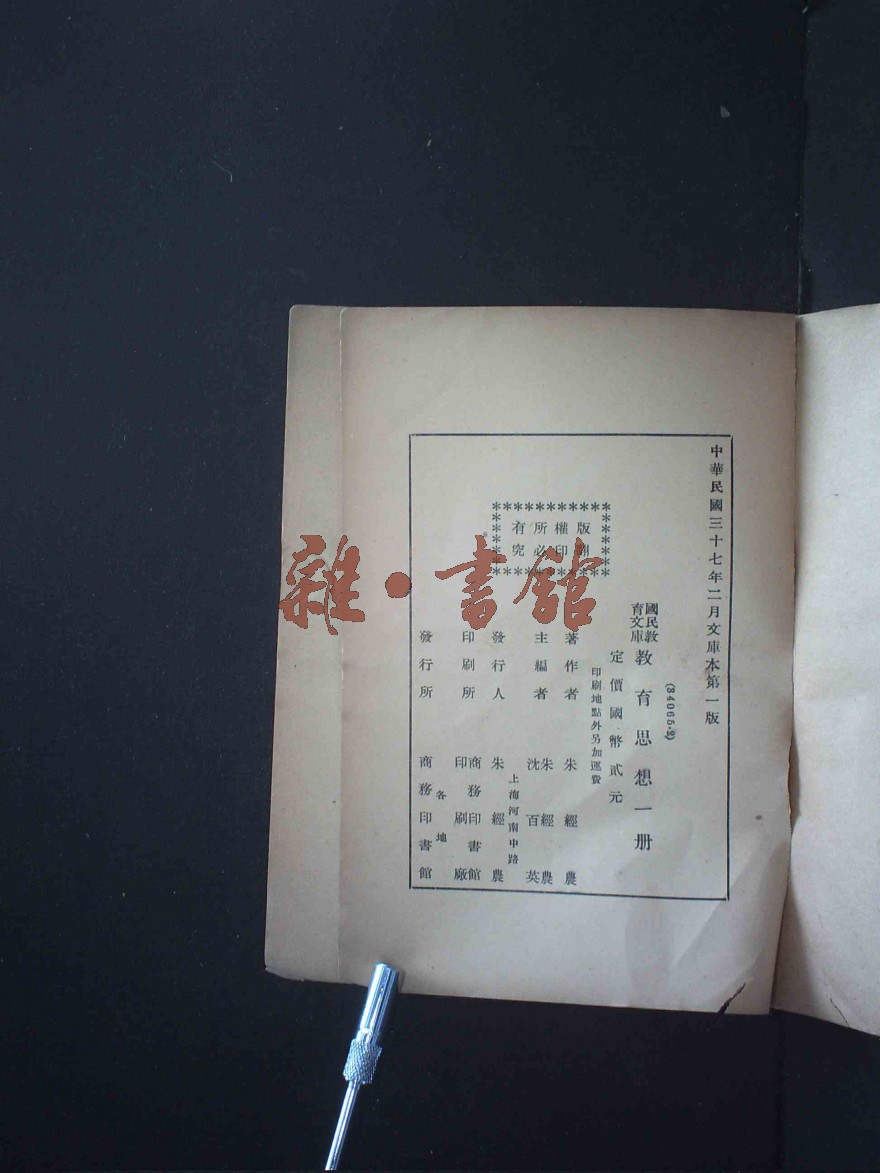 中華民國三十七年二月文庫本第一版
版權所有
翻印必究
(84065·2)
國民教育文庫
教育思想一册
定價國幣貳元
印刷地點外另加運費
著作者 朱經農
主編者 朱經農 沈百英
上海河南中路
發行人 朱經農
印刷所 商務印書館印刷廠
各地
發行所 商務印書館
雜·書館